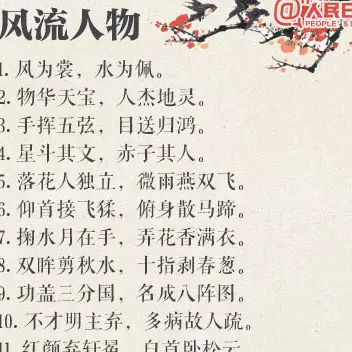 @人民日
PEOPLE'S
风流人物
1. 风为裳，水为佩。
2. 物华天宝，人杰地灵。
3. 手挥五弦，目送归鸿。
4. 星斗其文，赤子其人。
5. 落花人独立，微雨燕双飞。
6. 仰首接飞猱，俯身散马蹄。
7. 掬水月在手，弄花香满衣。
8. 双眸剪秋水，十指剥春葱。
9. 功盖三分国，名成八阵图。
10. 不才明主弃，多病故人疏。
11. 红颜弃轩冕，白首卧松云